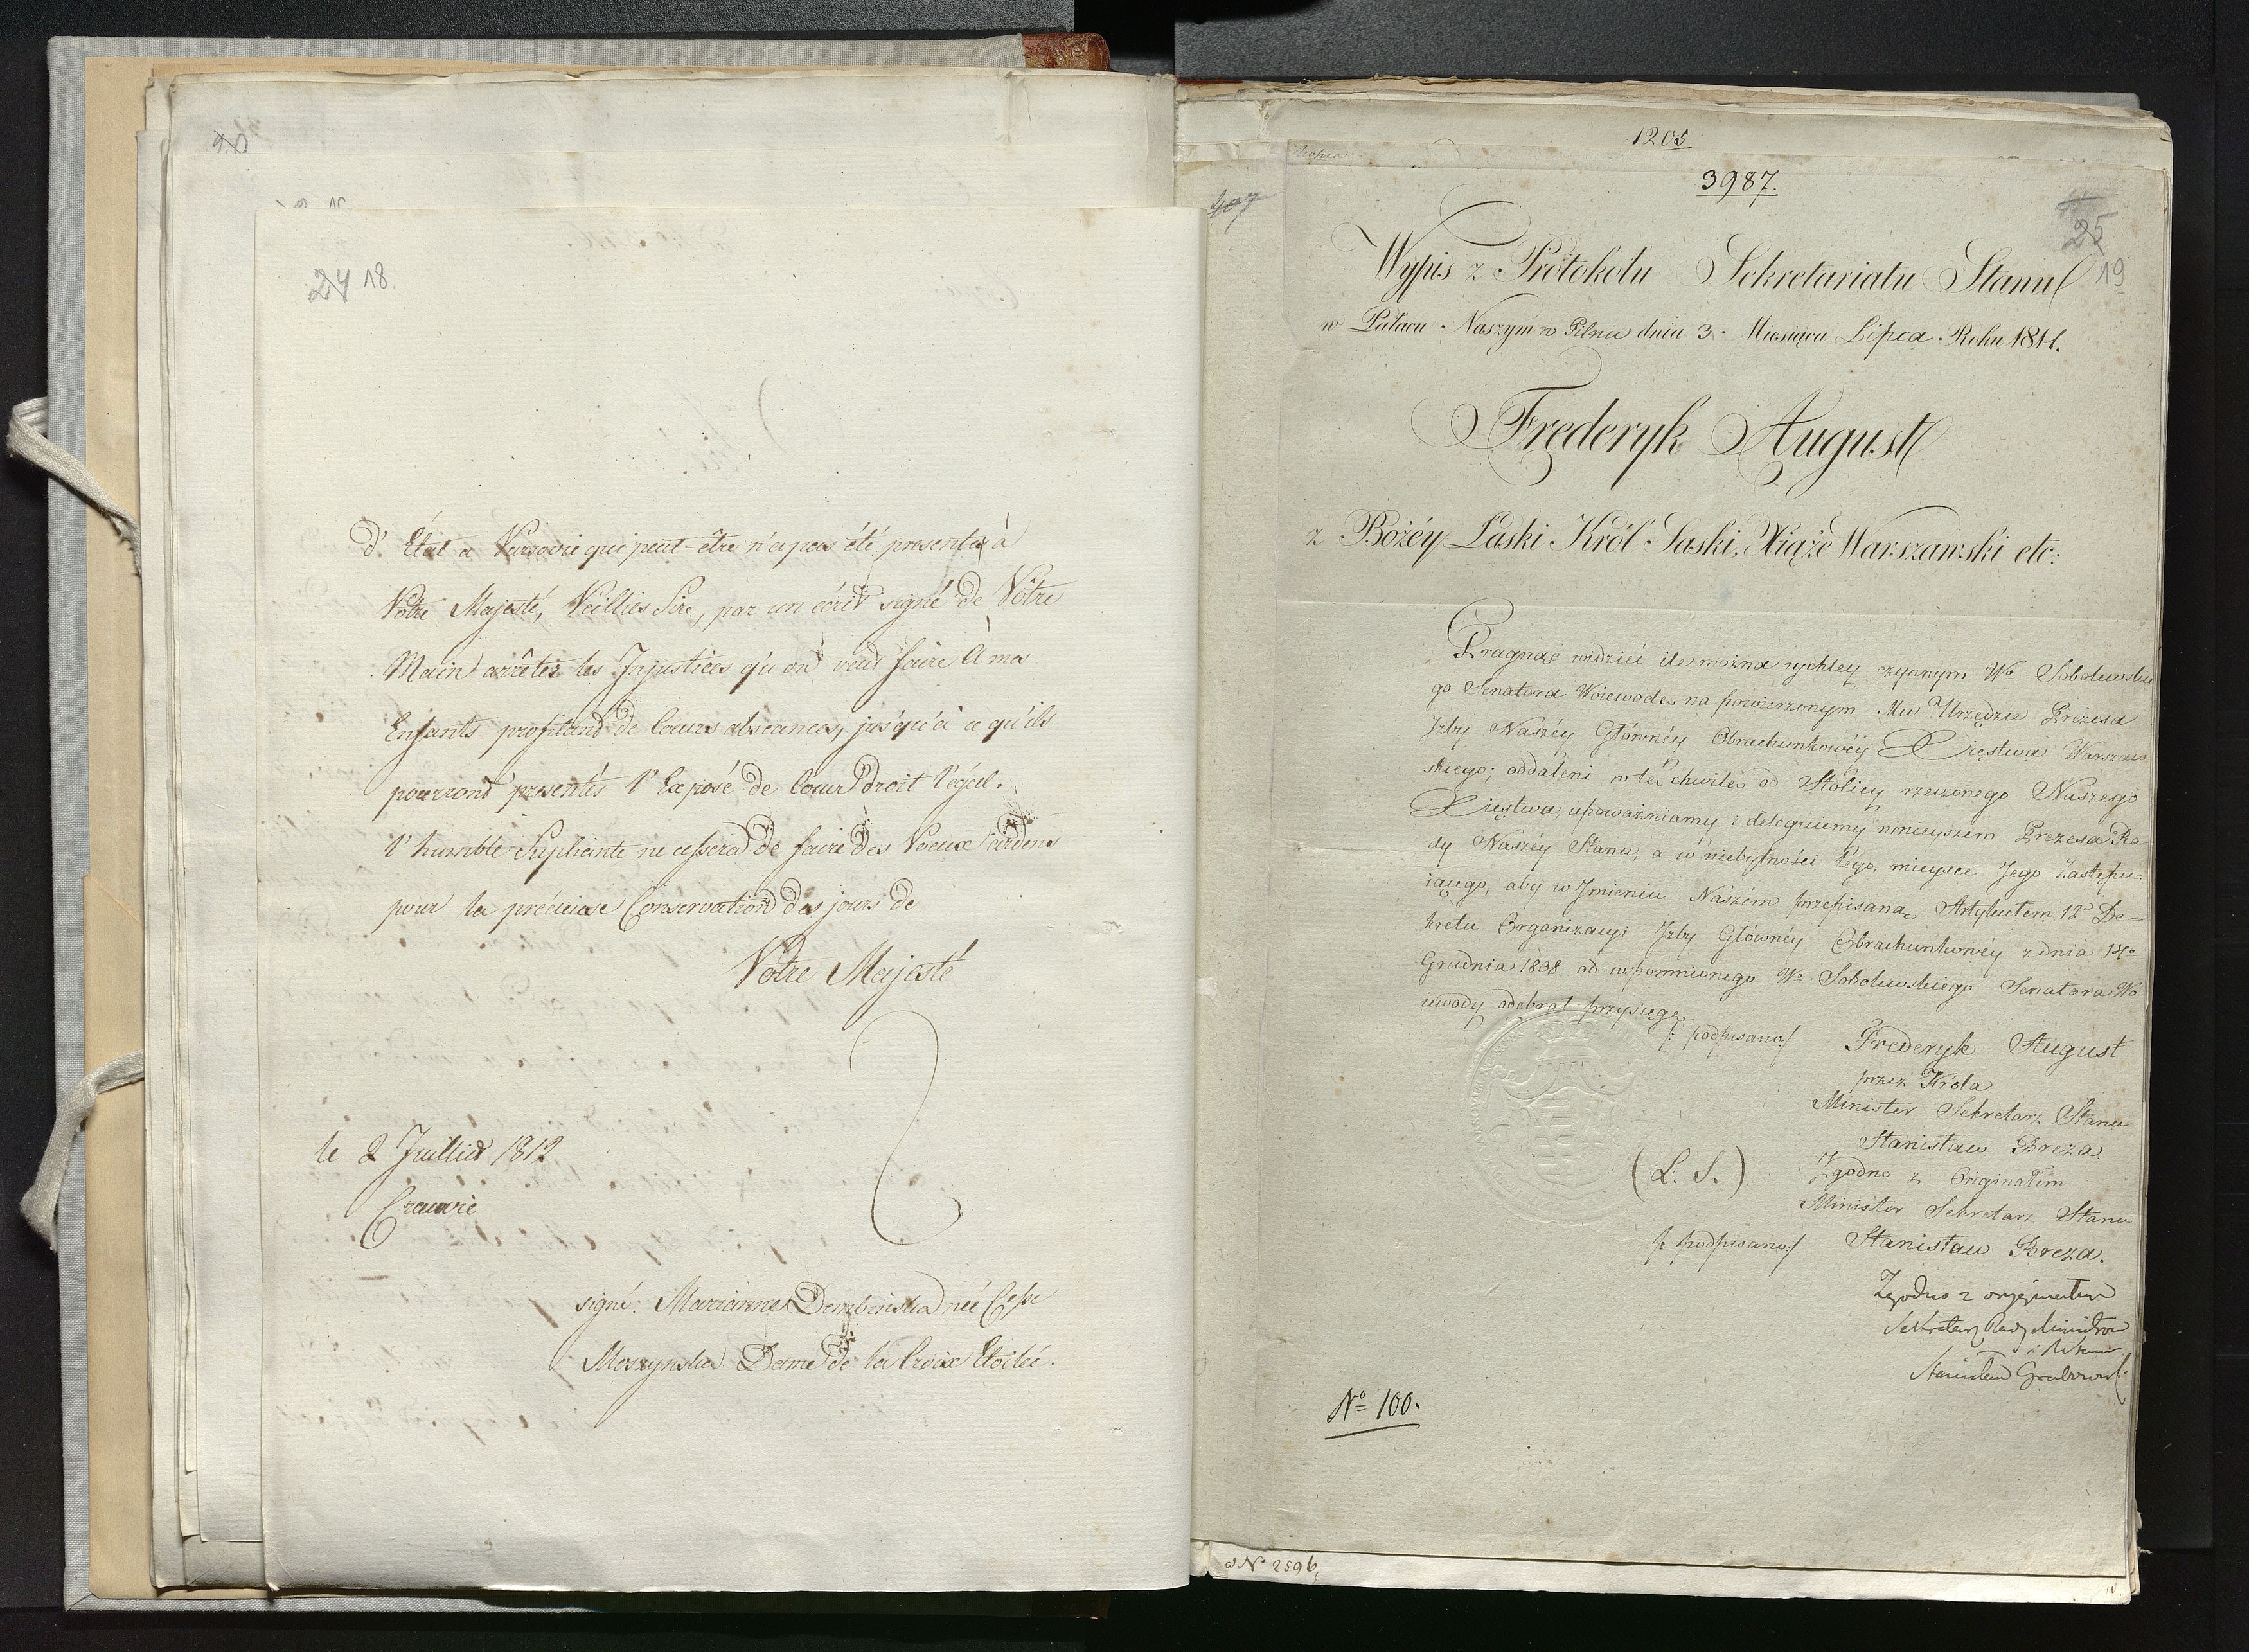 24 18
d'Etat a Varsovie qui peut-être n'a pas été presenta à
Votre Majesté, Veilliés Sire, par un écrit signé de Votre
Main arrêter les Injustices qu'on veut faire à mes
Enfants profitand de Loeurs absences, jusqu'à ce qu'ils
pourront presentés l'Exposé de Loeur Droit l'egal.
l'humble Supliante ne cessera de faire des Voeux ardens
pour la précieuse Conservation des jours de
Votre Majesté
le 2 Juillet 1812
Cracovie
signé: Marianne Dembinska née Cesse
Moszynska Dame de la Croix Etoilée.
1205
Kopia
3987.
407
25
19
Wypis z Protokołu Sekretariatu Stanu
w Pałacu Naszym w Pilnic dnia 3. Miesiąca Lipca Roku 1811.
Frederyk August
z Bożéy Łaski Król Saski, Xiąże Warszawski etc:
Pragnąc widzieć ile można rychley czynnym Wo Sobolewskie
go Senatora Woiewodę na powierzonym Mu Urzędzie Prezesa
Izby Naszéy Główney Obrachunkowéy Xięstwa Warszaw
skiego; oddaleni w tę chwilę od Stolicy rzeczonego Naszego
Xięstwa, upoważniamy i deleguiemy ninieyszem Prezesa Ra
dy Naszéy Stanu, a w niebytności Tego, mieysce Jego zastępu-
iącego, aby w Imieniu Naszém przepisaną Artykułem 12o De=
kretu Organizacyi Izby Główney Obrachunkowéy z dnia 14o
Grudnia 1808 od wspomnionego Wo Sobolewskiego Senatora Wo
iewody odebrał przysięgę.
/: podpisano:/ Frederyk August
przez Króla
Minister Sekretarz Stanu
Stanisław Breza
(L. S.) Zgodno z Originałem
Minister Sekretarz Stanu
/: podpisano:/ Stanisław Breza.
Zgodno z oryginałem
Sekretarz Rady Ministrow
Stanisław Grabowski
No 100.
No 2596,